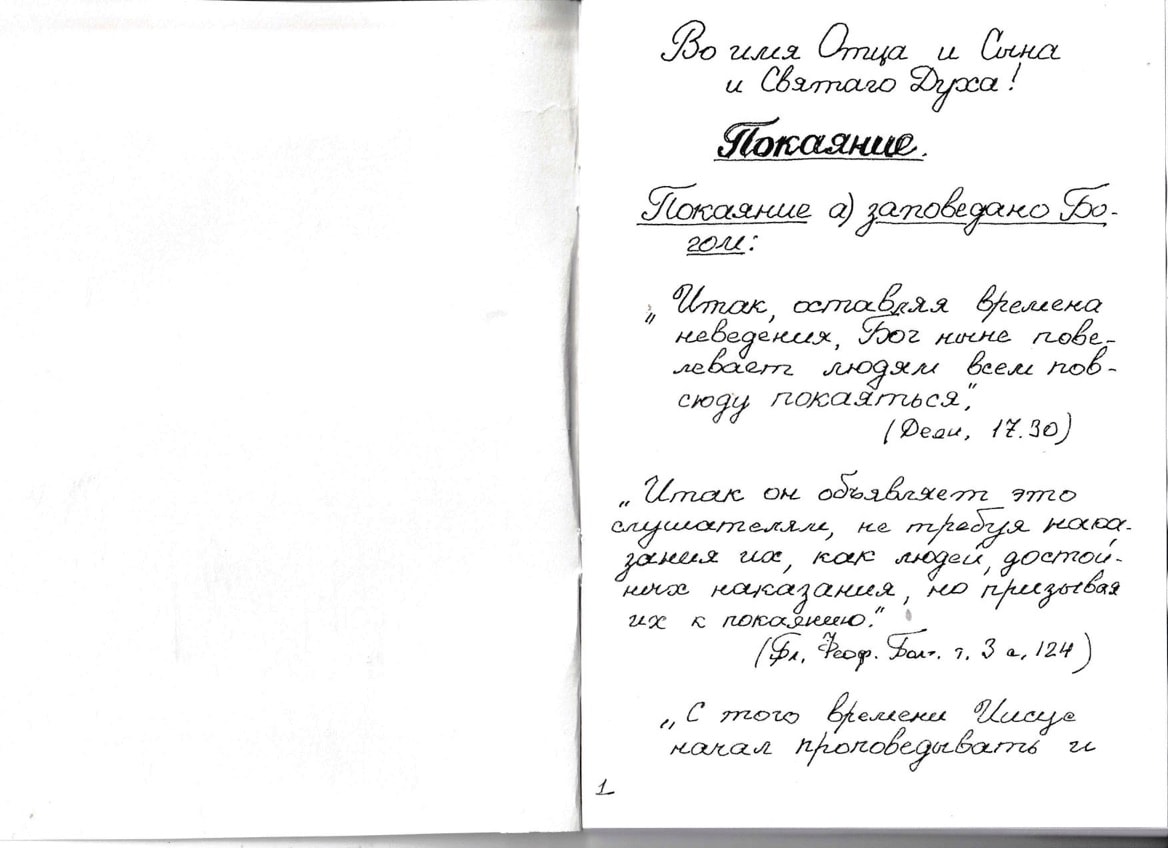 Во имя Отца и Сына
и Святаго Духа!
Покаяние.
Покаяние а) заповедано Бо-
гом:
„Итак, оставляя времена
неведения, Бог ныне пове-
левает людям всем пов-
сюду покаяться",
(Деян, 17.30)
„Итак он объявляет это
слушателям, не требуя нака-
зания их, как людей, достой-
ных наказания, но призывая
их к покаянию."
(Бл. Феоф. Болг. т. 3 с. 124)
„С того времени Иисус
начал проповедывать и
1